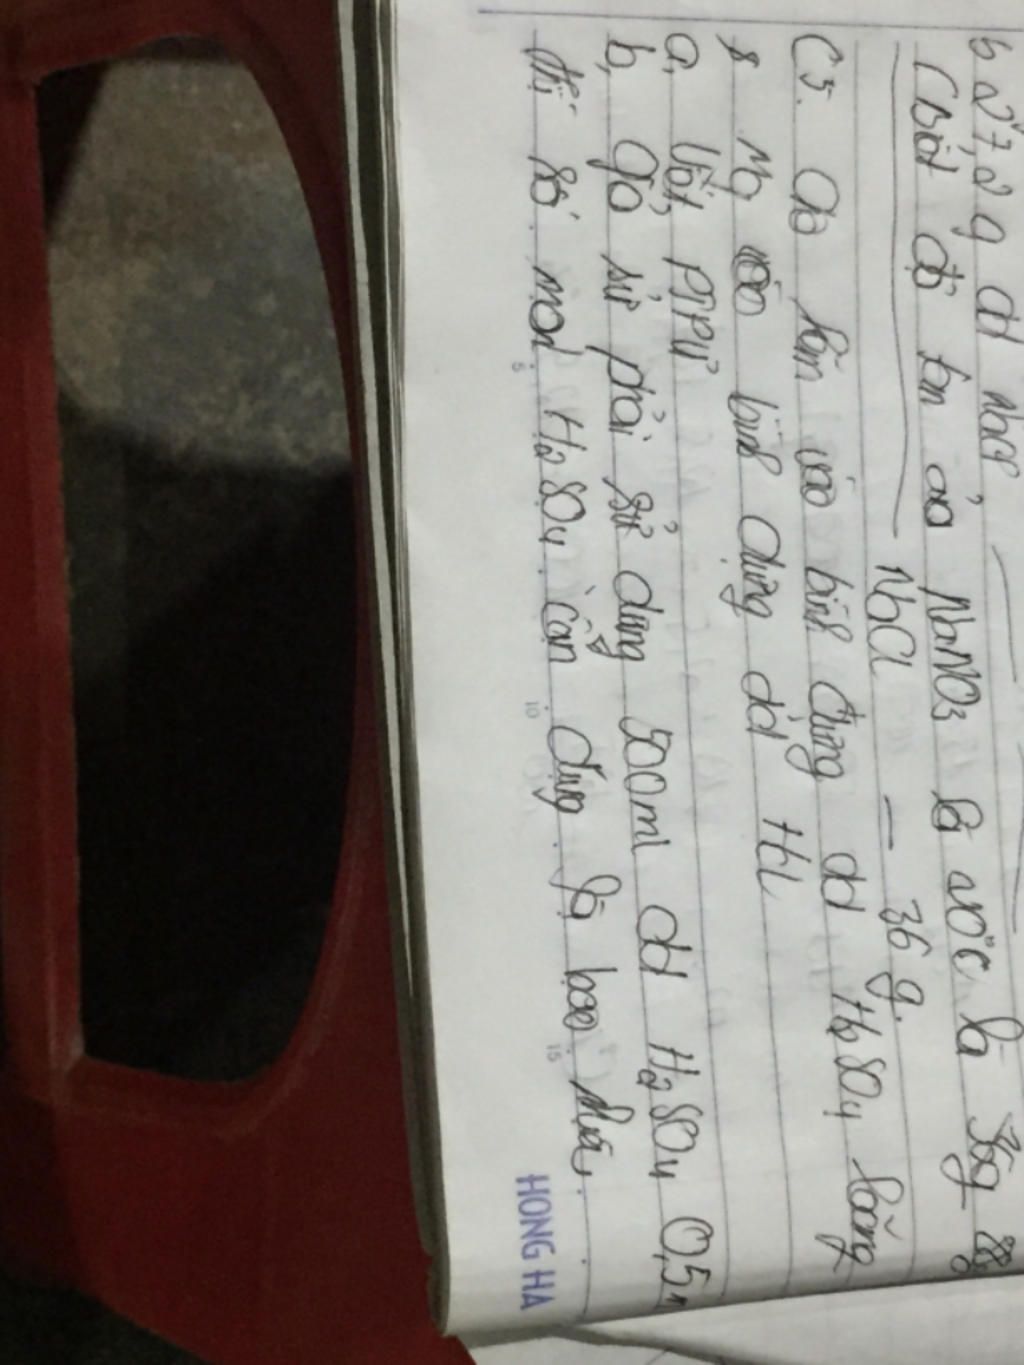 27,2 g dd
(Biết độ tan của NaNO3 là 20°C là
NaCl — 36 g.
C5. Cho kẽm vào bình đựng dd H2SO4 loãng
& Mg vào bình đựng dd HCl
a, Viết PTPƯ
b, Giả sử phải sử dụng 500ml dd H2SO4 0,5M
thì số mol H2SO4 cần dùng là bao nhiêu
5 10 15
HONG HA